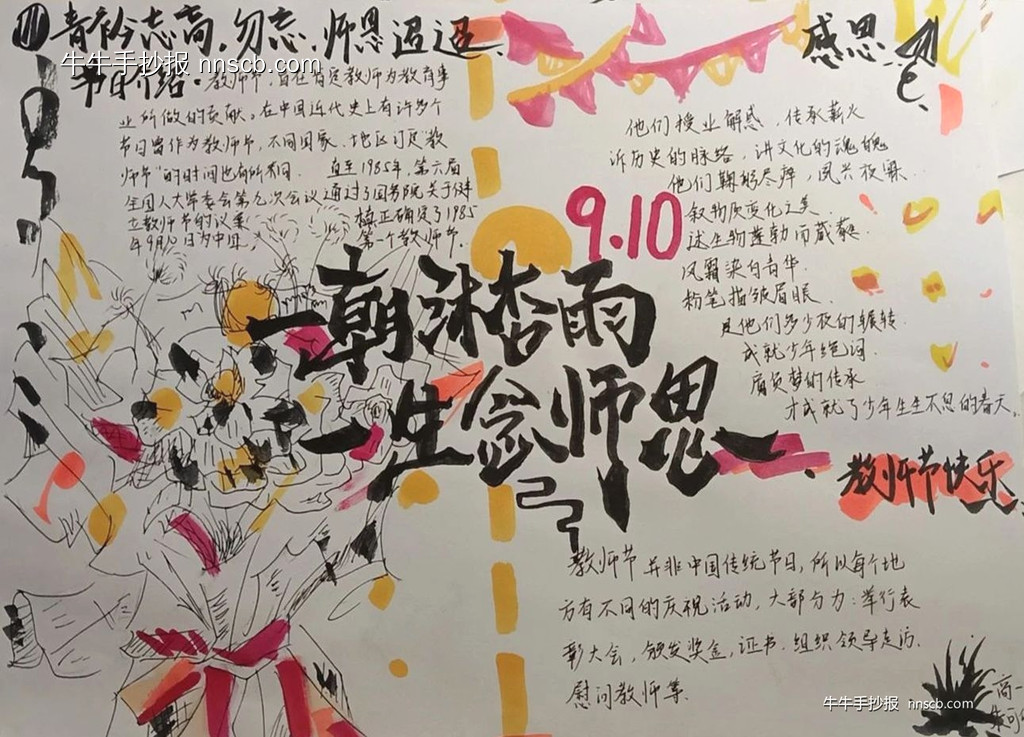 青衿志高，勿忘，师恩迢迢
牛牛手抄报 nnscb.com
节日介绍：教师节，旨在肯定教师为教育事
业所做的贡献。在中国近代史上有许多个
节日曾作为教师节，不同国家、地区门定“教
师节”的时间也有所不同． 直至1985年，第六届
全国人大常委会第九次会议通过了国务院关于建
立教师节的议案
真正确定了1985
年9月10日为中国
第一个教师节．
感恩
他们授业解惑，传承薪火
诉历史的脉络，讲文化的魂魄
他们鞠躬尽瘁，夙兴夜寐
9.10
叙物质变化之美
述生物蓬勃而葳蕤
风霜染白青华
粉笔描皱眉眼
是他们多少夜的辗转
成就少年绝词
肩负梦的传承
才成就了少年生生不息的春天。
一朝沐杏雨
一生念师恩
教师节快乐
教师节并非中国传统节日，所以每个地
方有不同的庆祝活动，大部分为：举行表
彰大会，颁发奖金，证书．组织领导走访．
慰问教师等．
牛牛手抄报 nnscb.com
高一